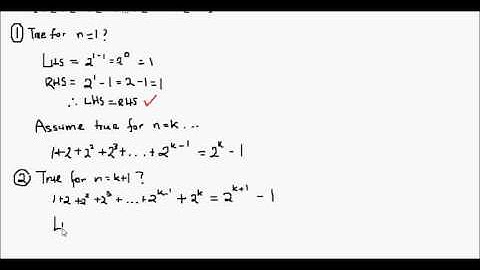 ① True for n=1?
LHS = 2¹⁻¹ = 2⁰ = 1
RHS = 2¹ - 1 = 2 - 1 = 1
∴ LHS = RHS ✓
Assume true for n=k...
1+2+2²+2³+...+2ᵏ⁻¹ = 2ᵏ - 1
② True for n=k+1?
1+2+2²+2³+...+2ᵏ⁻¹+2ᵏ = 2ᵏ⁺¹ - 1
L